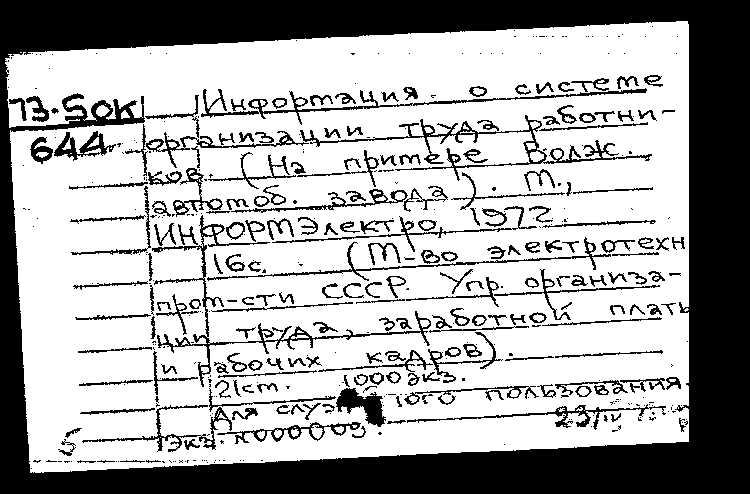 73-5ок Информация о системе
644 организации труда работни-
ков. (На примере Волж.
автомоб. завода). М.,
ИНФОРМЭлектро, 1972.
16с. (М-во электротехн
пром-сти СССР. Упр. организа-
ции труда, заработной платы
и рабочих кадров).
21см. 1000экз.
Для пользования.
5 Экз. N000009. 23/IV